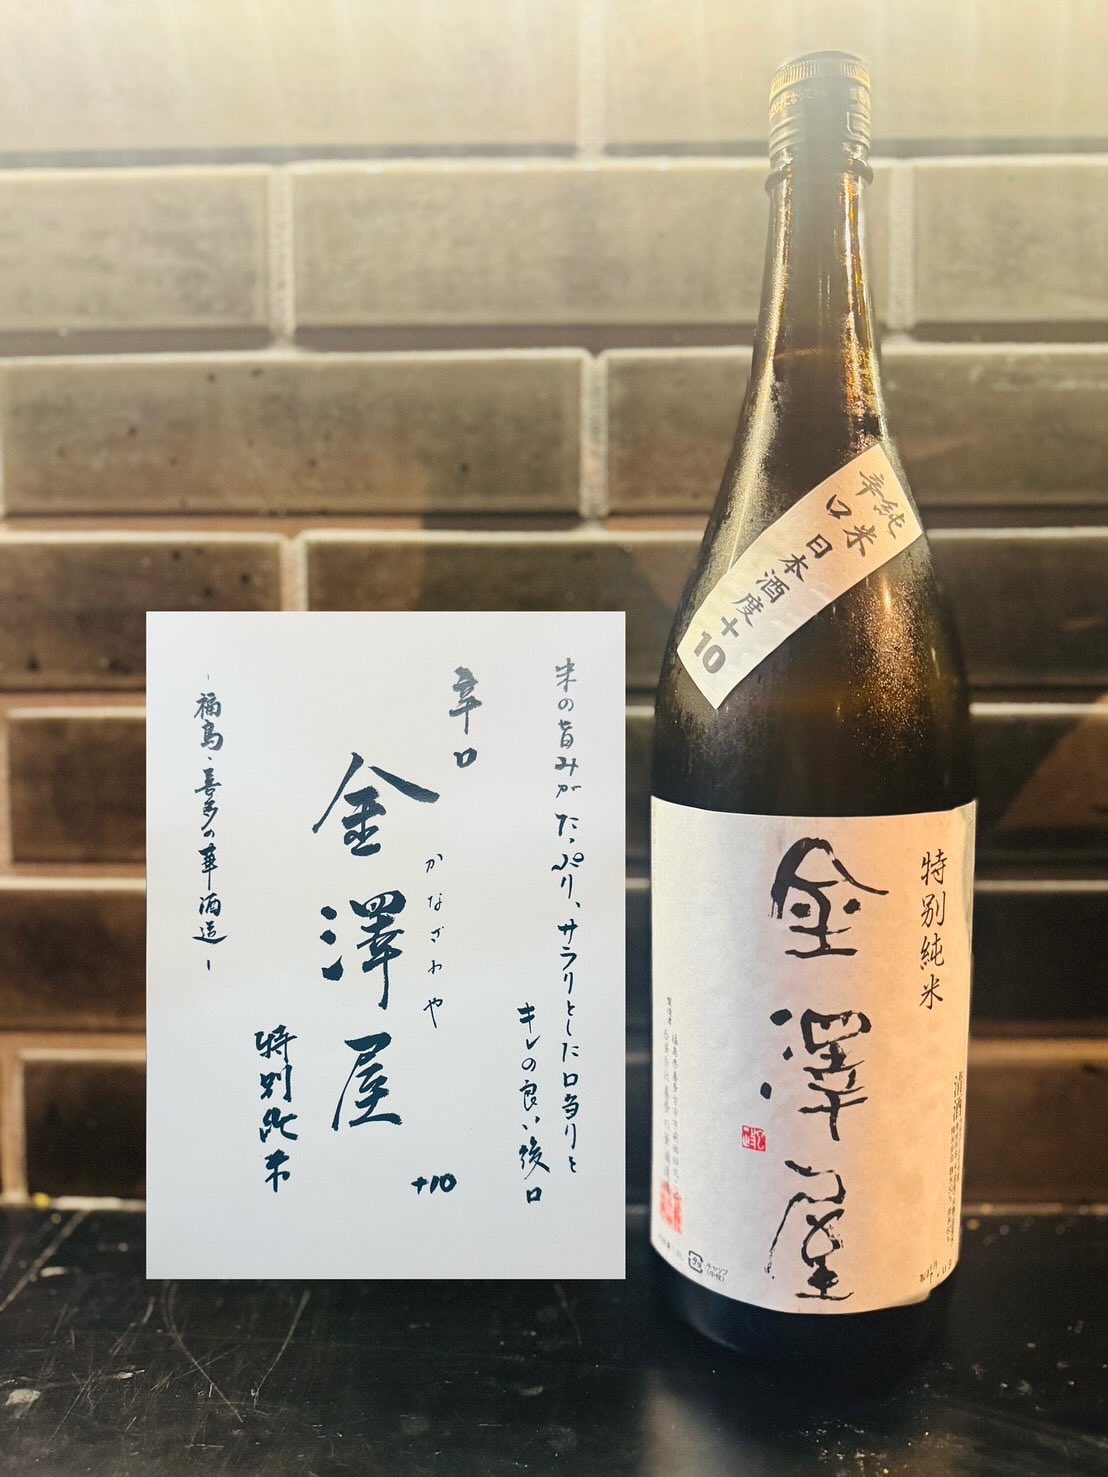 米の旨みがたっぷり、サラリとした口当りと
キレの良い後口
辛口
金澤屋
かなざわや
+10
特別純米
-福島・喜多の華酒造-
純米
辛口
日本酒度+10
特別純米
金澤屋
清酒
製造者
キャップ
(中栓)